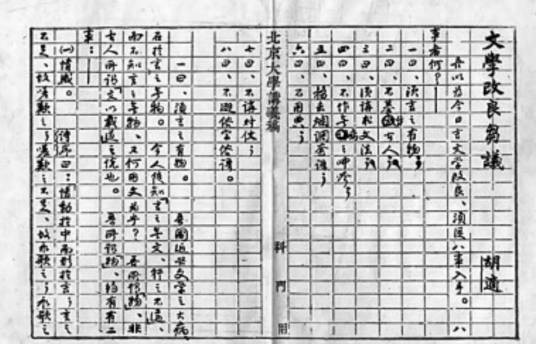 文學改良芻議
胡適
吾以為今日言文學改良、須從八事入手。八
事者何？——
一曰、須言之有物。
二曰、不摹仿古人。
三曰、須講求文法。
四曰、不作無病之呻吟。
五曰、務去爛調套語。
六曰、不用典。
北京大學講義稿
科
門
七曰、不講對仗。
八曰、不避俗字俗語。
一曰、須言之有物。 吾國近世文學之大病、
在於言之無物。 今人徒知言之無文、行之不遠、
而不知言之無物、又何用文為乎？ 吾所謂物、非
古人所謂文以載道之說也。 吾所謂物、約有二
事：——
(一)情感。 詩序曰：情動於中而形於言。言之
不足、故嗟歎之。嗟歎之不足、故永歌之。永歌之